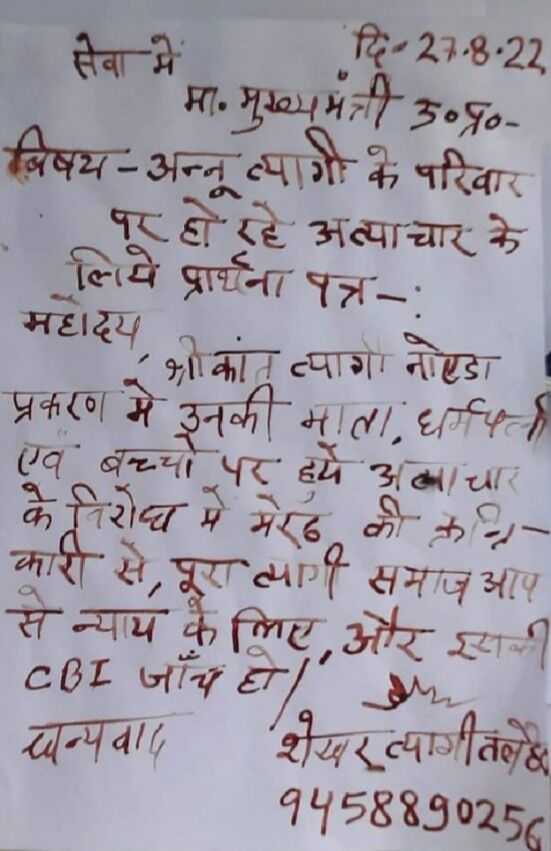 दि- 27.8.22
सेवा में
मा. मुख्यमंत्री उ०प्र०-
विषय - अन्नू त्यागी के परिवार
पर हो रहे अत्याचार के
लिये प्रार्थना पत्र -:
महोदय,
श्रीकांत त्यागी नोएडा
प्रकरण मे उनकी माता, धर्मपत्नी
एवं बच्चो पर हुये अत्याचार
के विरोध मे मेरठ की क्रान्ति-
कारी से, पूरा त्यागी समाज आप
से न्याय के लिए, और इसकी
CBI जाँच हो/
धन्यवाद
शेखर त्यागी
9458890256